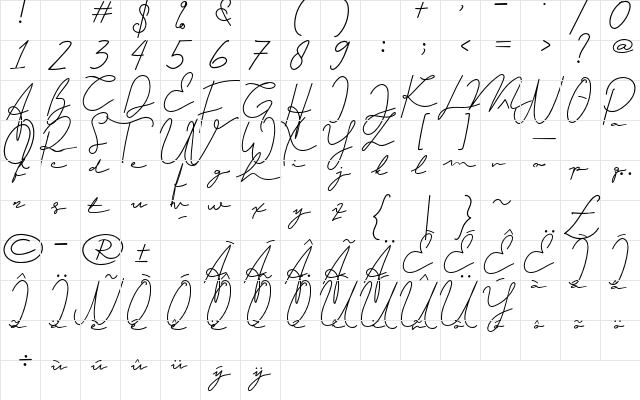 ! # $ % & ( ) + , - . / 0
1 2 3 4 5 6 7 8 9 : ; < = > ? @
A B C D E F G H I J K L M N O P
Q R S T U V W X Y Z [ ] _ a
b c d e f g h i j k l m n o p q
r s t u v w x y z { | } ~ £
© - ® ± À Á Â Ã Ä È É Ê Ë Ì Í
Î Ï Ñ Ò Ó Ô Õ Ö Ù Ú Û Ü Ý à á â
ã ä è é ê ë ì í î ï ñ ò ó ô õ ö
÷ ù ú û ü ý ÿ